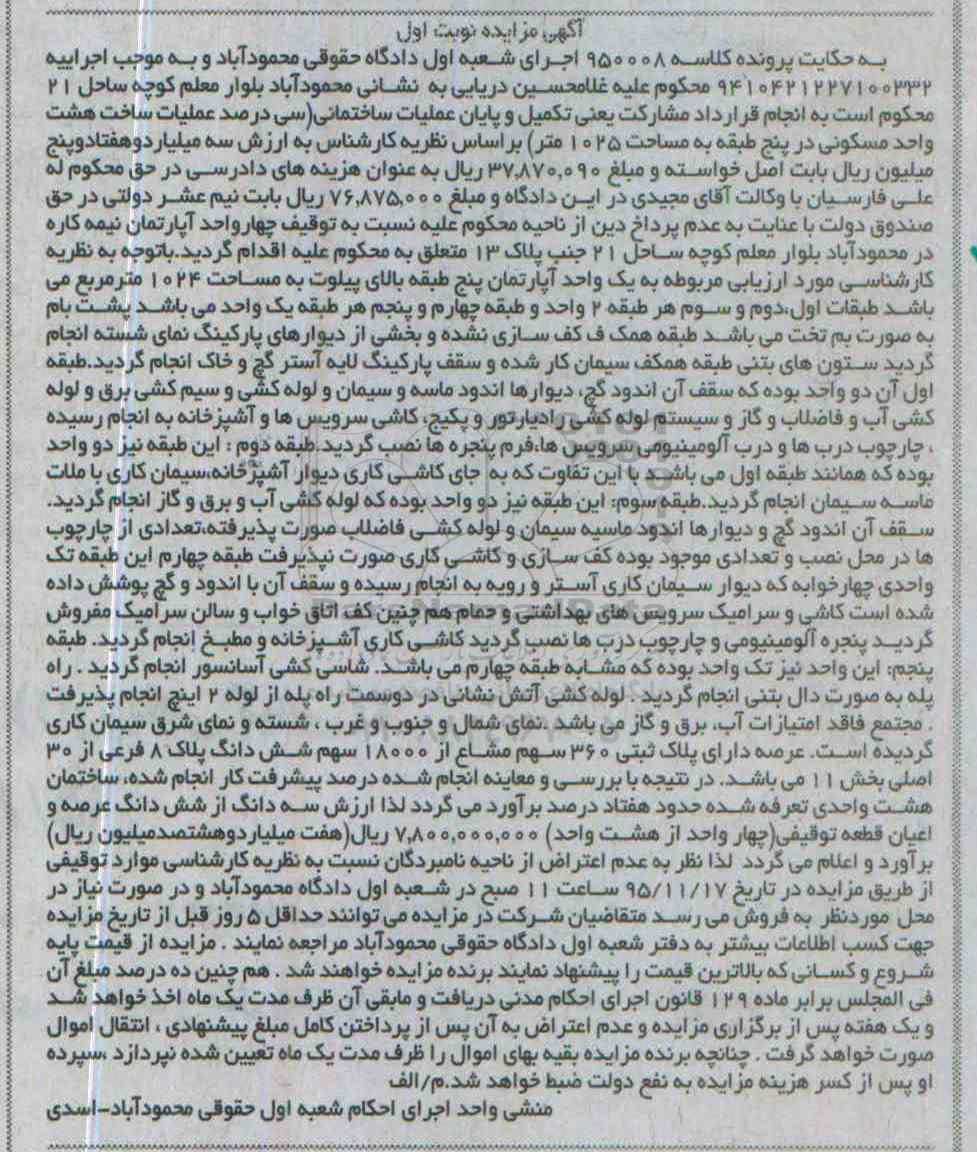 آگهی مزایده نوبت اول
به حکایت پرونده کلاسه ۹۵۰۰۰۸ اجرای شعبه اول دادگاه حقوقی محمودآباد و به موجب اجراییه
۹۴۱۰۴۲۱۲۲۷۱۰۰۳۳۲ محکوم علیه غلامحسین دریایی به نشانی محمودآباد بلوار معلم کوچه ساحل ۲۱
محکوم است به انجام قرارداد مشارکت یعنی تکمیل و پایان عملیات ساختمانی(سی درصد عملیات ساخت هشت
واحد مسکونی در پنج طبقه به مساحت ۱۰۲۵ متر) براساس نظریه کارشناس به ارزش سه میلیاردوهفتادوپنج
میلیون ریال بابت اصل خواسته و مبلغ ۳۷,۸۷۰,۰۹۰ ریال به عنوان هزینه های دادرسی در حق محکوم له
علی فارسیان با وکالت آقای مجیدی در این دادگاه و مبلغ ۷۶,۸۷۵,۰۰۰ ریال بابت نیم عشر دولتی در حق
صندوق دولت با عنایت به عدم پرداخ دین از ناحیه محکوم علیه نسبت به توقیف چهارواحد آپارتمان نیمه کاره
در محمودآباد بلوار معلم کوچه ساحل ۲۱ جنب پلاک ۱۳ متعلق به محکوم علیه اقدام گردید.باتوجه به نظریه
کارشناسی مورد ارزیابی مربوطه به یک واحد آپارتمان پنج طبقه بالای پیلوت به مساحت ۱۰۲۴ مترمربع می
باشد طبقات اول،دوم و سوم هر طبقه ۲ واحد و طبقه چهارم و پنجم هر طبقه یک واحد می باشد پشت بام
به صورت بم تخت می باشد طبقه همک ف کف سازی نشده و بخشی از دیوارهای پارکینگ نمای شسته انجام
گردید ستون های بتنی طبقه همکف سیمان کار شده و سقف پارکینگ لایه آستر گچ و خاک انجام گردید.طبقه
اول آن دو واحد بوده که سقف آن اندود گچ، دیوارها اندود ماسه و سیمان و لوله کشی و سیم کشی برق و لوله
کشی آب و فاضلاب و گاز و سیستم لوله کشی رادیارتور و پکیج، کاشی سرویس ها و آشپزخانه به انجام رسیده
، چارچوب درب ها و درب آلومینیومی سرویس ها،فرم پنجره ها نصب گردید.طبقه دوم : این طبقه نیز دو واحد
بوده که همانند طبقه اول می باشد با این تفاوت که به جای کاشی کاری دیوار آشپزخانه،سیمان کاری با ملات
ماسه سیمان انجام گردید.طبقه سوم: این طبقه نیز دو واحد بوده که لوله کشی آب و برق و گاز انجام گردید.
سقف آن اندود گچ و دیوارها اندود ماسیه سیمان و لوله کشی فاضلاب صورت پذیرفته،تعدادی از چارچوب
ها در محل نصب و تعدادی موجود بوده کف سازی و کاشی کاری صورت نپذیرفت طبقه چهارم این طبقه تک
واحدی چهارخوابه که دیوار سیمان کاری آستر و رویه به انجام رسیده و سقف آن با اندود و گچ پوشش داده
شده است کاشی و سرامیک سرویس های بهداشتی و حمام هم چنین کف اتاق خواب و سالن سرامیک مفروش
گردید پنجره آلومینیومی و چارچوب درب ها نصب گردید کاشی کاری آشپزخانه و مطبخ انجام گردید. طبقه
پنجم: این واحد نیز تک واحد بوده که مشابه طبقه چهارم می باشد. شاسی کشی آسانسور انجام گردید . راه
پله به صورت دال بتنی انجام گردید . لوله کشی آتش نشانی در دوسمت راه پله از لوله ۲ اینچ انجام پذیرفت
. مجتمع فاقد امتیازات آب، برق و گاز می باشد .نمای شمال و جنوب و غرب ، شسته و نمای شرق سیمان کاری
گردیده است. عرصه دارای پلاک ثبتی ۳۶۰ سهم مشاع از ۱۸۰۰۰ سهم شش دانگ پلاک ۸ فرعی از ۳۰
اصلی بخش ۱۱ می باشد. در نتیجه با بررسی و معاینه انجام شده درصد پیشرفت کار انجام شده، ساختمان
هشت واحدی تعرفه شده حدود هفتاد درصد برآورد می گردد لذا ارزش سه دانگ از شش دانگ عرصه و
اعیان قطعه توقیفی(چهار واحد از هشت واحد) ۷,۸۰۰,۰۰۰,۰۰۰ ریال(هفت میلیاردوهشتصدمیلیون ریال)
برآورد و اعلام می گردد لذا نظر به عدم اعتراض از ناحیه نامبردگان نسبت به نظریه کارشناسی موارد توقیفی
از طریق مزایده در تاریخ ۹۵/۱۱/۱۷ ساعت ۱۱ صبح در شعبه اول دادگاه محمودآباد و در صورت نیاز در
محل موردنظر به فروش می رسد متقاضیان شرکت در مزایده می توانند حداقل ۵ روز قبل از تاریخ مزایده
جهت کسب اطلاعات بیشتر به دفتر شعبه اول دادگاه حقوقی محمودآباد مراجعه نمایند . مزایده از قیمت پایه
شروع و کسانی که بالاترین قیمت را پیشنهاد نمایند برنده مزایده خواهند شد . هم چنین ده درصد مبلغ آن
فی المجلس برابر ماده ۱۲۹ قانون اجرای احکام مدنی دریافت و مابقی آن ظرف مدت یک ماه اخذ خواهد شد
و یک هفته پس از برگزاری مزایده و عدم اعتراض به آن پس از پرداختن کامل مبلغ پیشنهادی ، انتقال اموال
صورت خواهد گرفت . چنانچه برنده مزایده بقیه بهای اموال را ظرف مدت یک ماه تعیین شده نپردازد ،سپرده
او پس از کسر هزینه مزایده به نفع دولت ضبط خواهد شد.م/الف
منشی واحد اجرای احکام شعبه اول حقوقی محمودآباد-اسدی